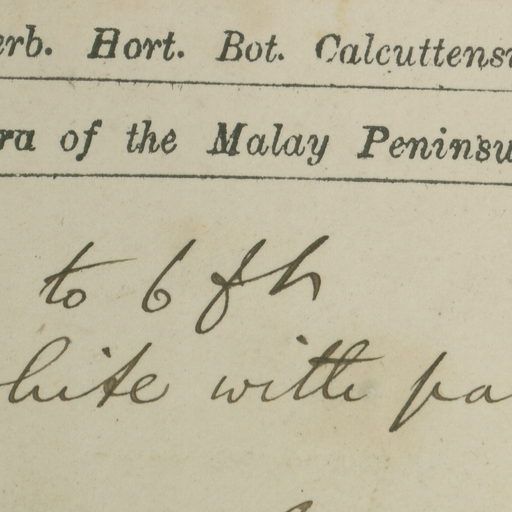 erb. Hort. Bot. Calcuttens
ra of the Malay Peninsu
to 6
hite with pa